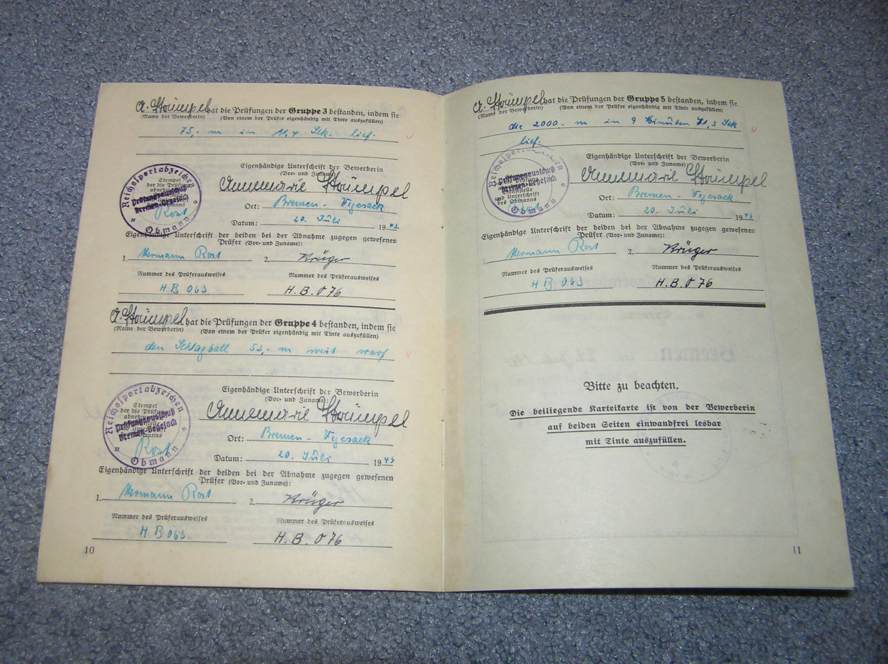 A. Stümpel hat die Prüfungen der Gruppe 3 bestanden, indem sie
(Name der Bewerberin) (Von einem der Prüfer eigenhändig mit Tinte auszufüllen)
75,- m in 11,4 Sek. lief.
Eigenhändige Unterschrift der Bewerberin
(Vor- und Zuname):
Annemarie Stümpel
Reichssportabzeichen
Stempel
der die Prüfung
Prüfungsausschuß
Bremen-Vegesack
Rost
Obmann
Ort: Bremen-Vegesack
Datum: 20. Juli 19
Eigenhändige Unterschrift der beiden bei der Abnahme zugegen gewesenen
Prüfer (Vor- und Zuname):
1. Hermann Rost 2. Krüger
Nummer des Prüferausweises Nummer des Prüferausweises
H B 063 H.B.O 76
A. Stümpel hat die Prüfungen der Gruppe 4 bestanden, indem sie
(Name der Bewerberin) (Von einem der Prüfer eigenhändig mit Tinte auszufüllen)
den Schlagball m weit warf
Eigenhändige Unterschrift der Bewerberin
(Vor- und Zuname):
Annemarie Stümpel
Reichssportabzeichen
Stempel
der die Prüfung
Prüfungsausschuß
Bremen-Vegesack
Rost
Obmann
Ort: Bremen-Vegesack
Datum: 20. Juli 19
Eigenhändige Unterschrift der beiden bei der Abnahme zugegen gewesenen
Prüfer (Vor- und Zuname):
1. Hermann Rost 2. Krüger
Nummer des Prüferausweises Nummer des Prüferausweises
H B 063. H.B.O 76
10
A. Stümpel hat die Prüfungen der Gruppe 5 bestanden, indem sie
(Name der Bewerberin) (Von einem der Prüfer eigenhändig mit Tinte auszufüllen)
die 2000,- m in 9 Minuten Sek
lief.
Eigenhändige Unterschrift der Bewerberin
(Vor- und Zuname):
Annemarie Stümpel
Reichssportabzeichen
Prüfungsausschuß
Bremen-Vegesack
Ort: Bremen-Vegesack
Datum: 20. Juli 19
Eigenhändige Unterschrift der beiden bei der Abnahme zugegen gewesenen
Prüfer (Vor- und Zuname):
1. Hermann Rost 2. Krüger
Nummer des Prüferausweises Nummer des Prüferausweises
H B 063 H.B.O 76
Bitte zu beachten.
Die beiliegende Karteikarte ist von der Bewerberin
auf beiden Seiten einwandfrei lesbar
mit Tinte auszufüllen.
11